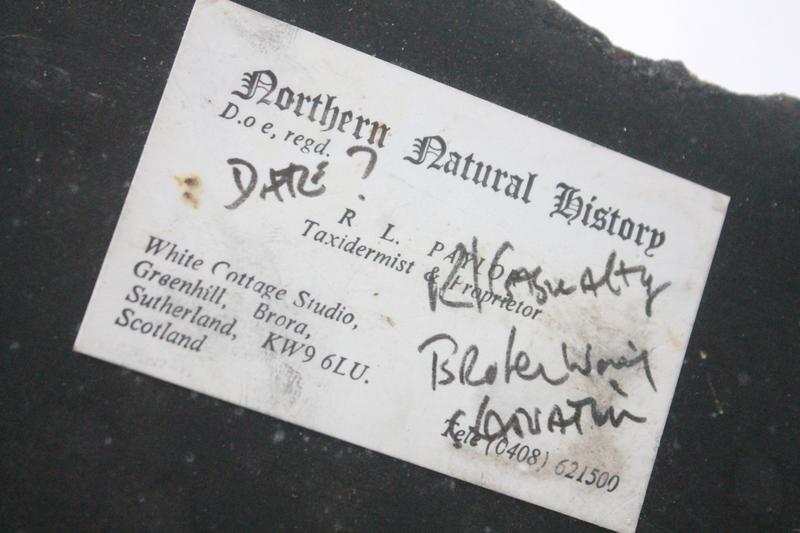 Northern Natural History
D.o e, regd.
DATE ?
R L. PAY
Taxidermist & Proprietor
R/Casualty
White Cottage Studio,
Greenhill, Brora,
Sutherland, KW9 6LU.
Scotland
Broken Wing
Tele (0408) 621500